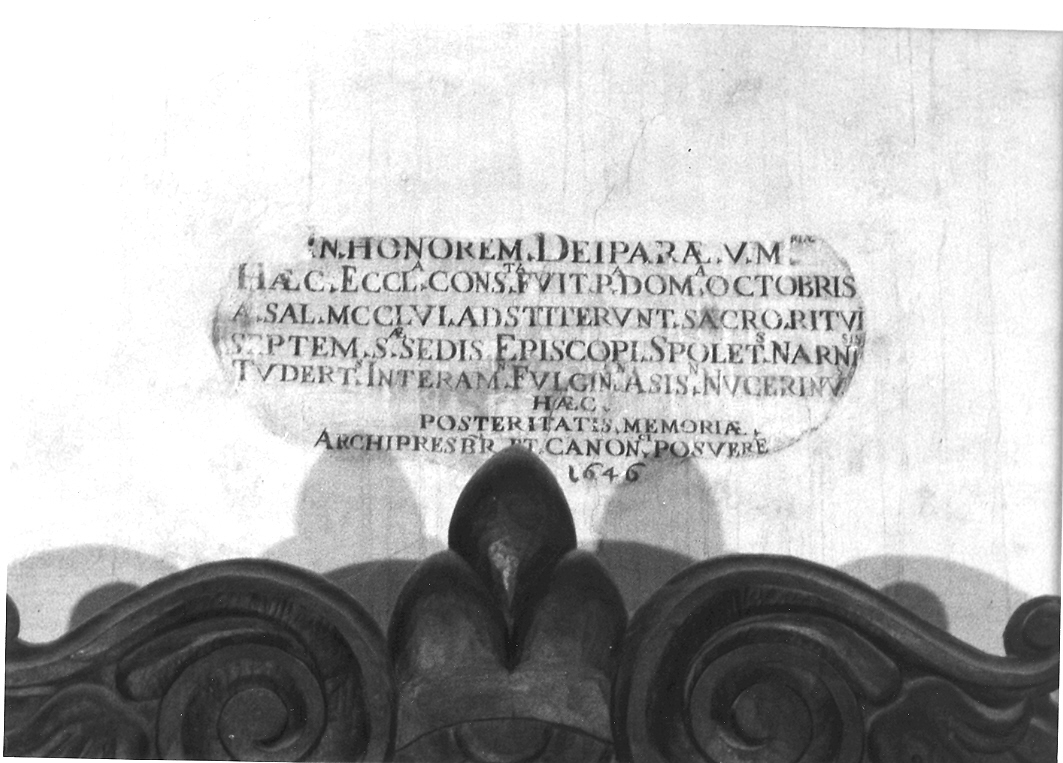 IN.HONOREM.DEIPARÆ.V.M.RIÆ
HÆC.ECCL^A.CONS^TA.FVIT.P^A.DOM^A.OCTOBRIS
A.SAL.MCCLVI.ADSTITERVNT.SACRO.RITVI
SEPTEM.S^Æ.SEDIS EPISCOPI.SPOLET^S.NARNI^SIS
TVDERT^S.INTERAM^N.FVLGIN^N.ASIS^N.NVCERINV^S
HÆC.
POSTERITATIS.MEMORIÆ.
ARCHIPRESB^R ET.CANON^CI.POSVERE
1646